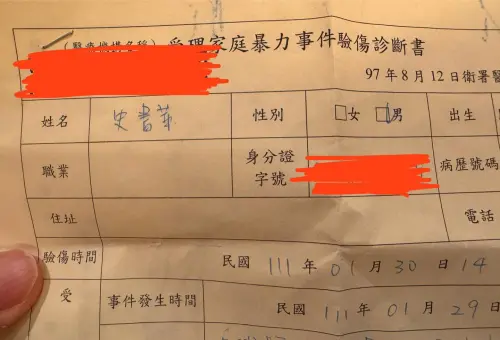 (醫療機構名稱)受理家庭暴力事件驗傷診斷書
97年8月12日衛署醫
姓名 史書華 性別 □女 □男 出生
職業 身分證字號 病歷號碼
住址 電話
驗傷時間 民國 111 年 01 月 30 日 14
受 事件發生時間 民國 111 年 01 月 29 日